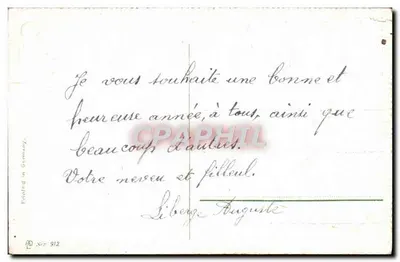 Je vous souhaite une bonne et
heureuse année, à tous, ainsi que
beaucoup d'autres.
Votre neveu et filleul.
Liberge Auguste
CPAPHIL
Printed in Germany.